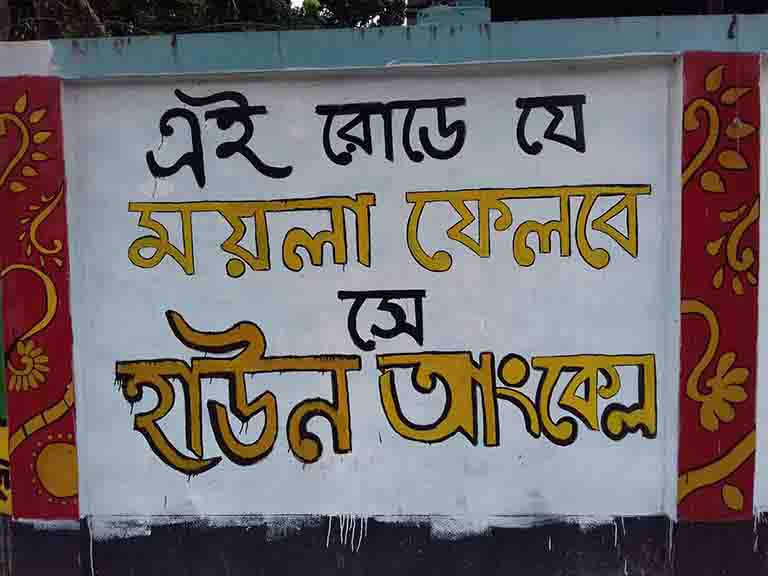 এই রোডে যে
ময়লা ফেলবে
সে
হাউন আংকেল